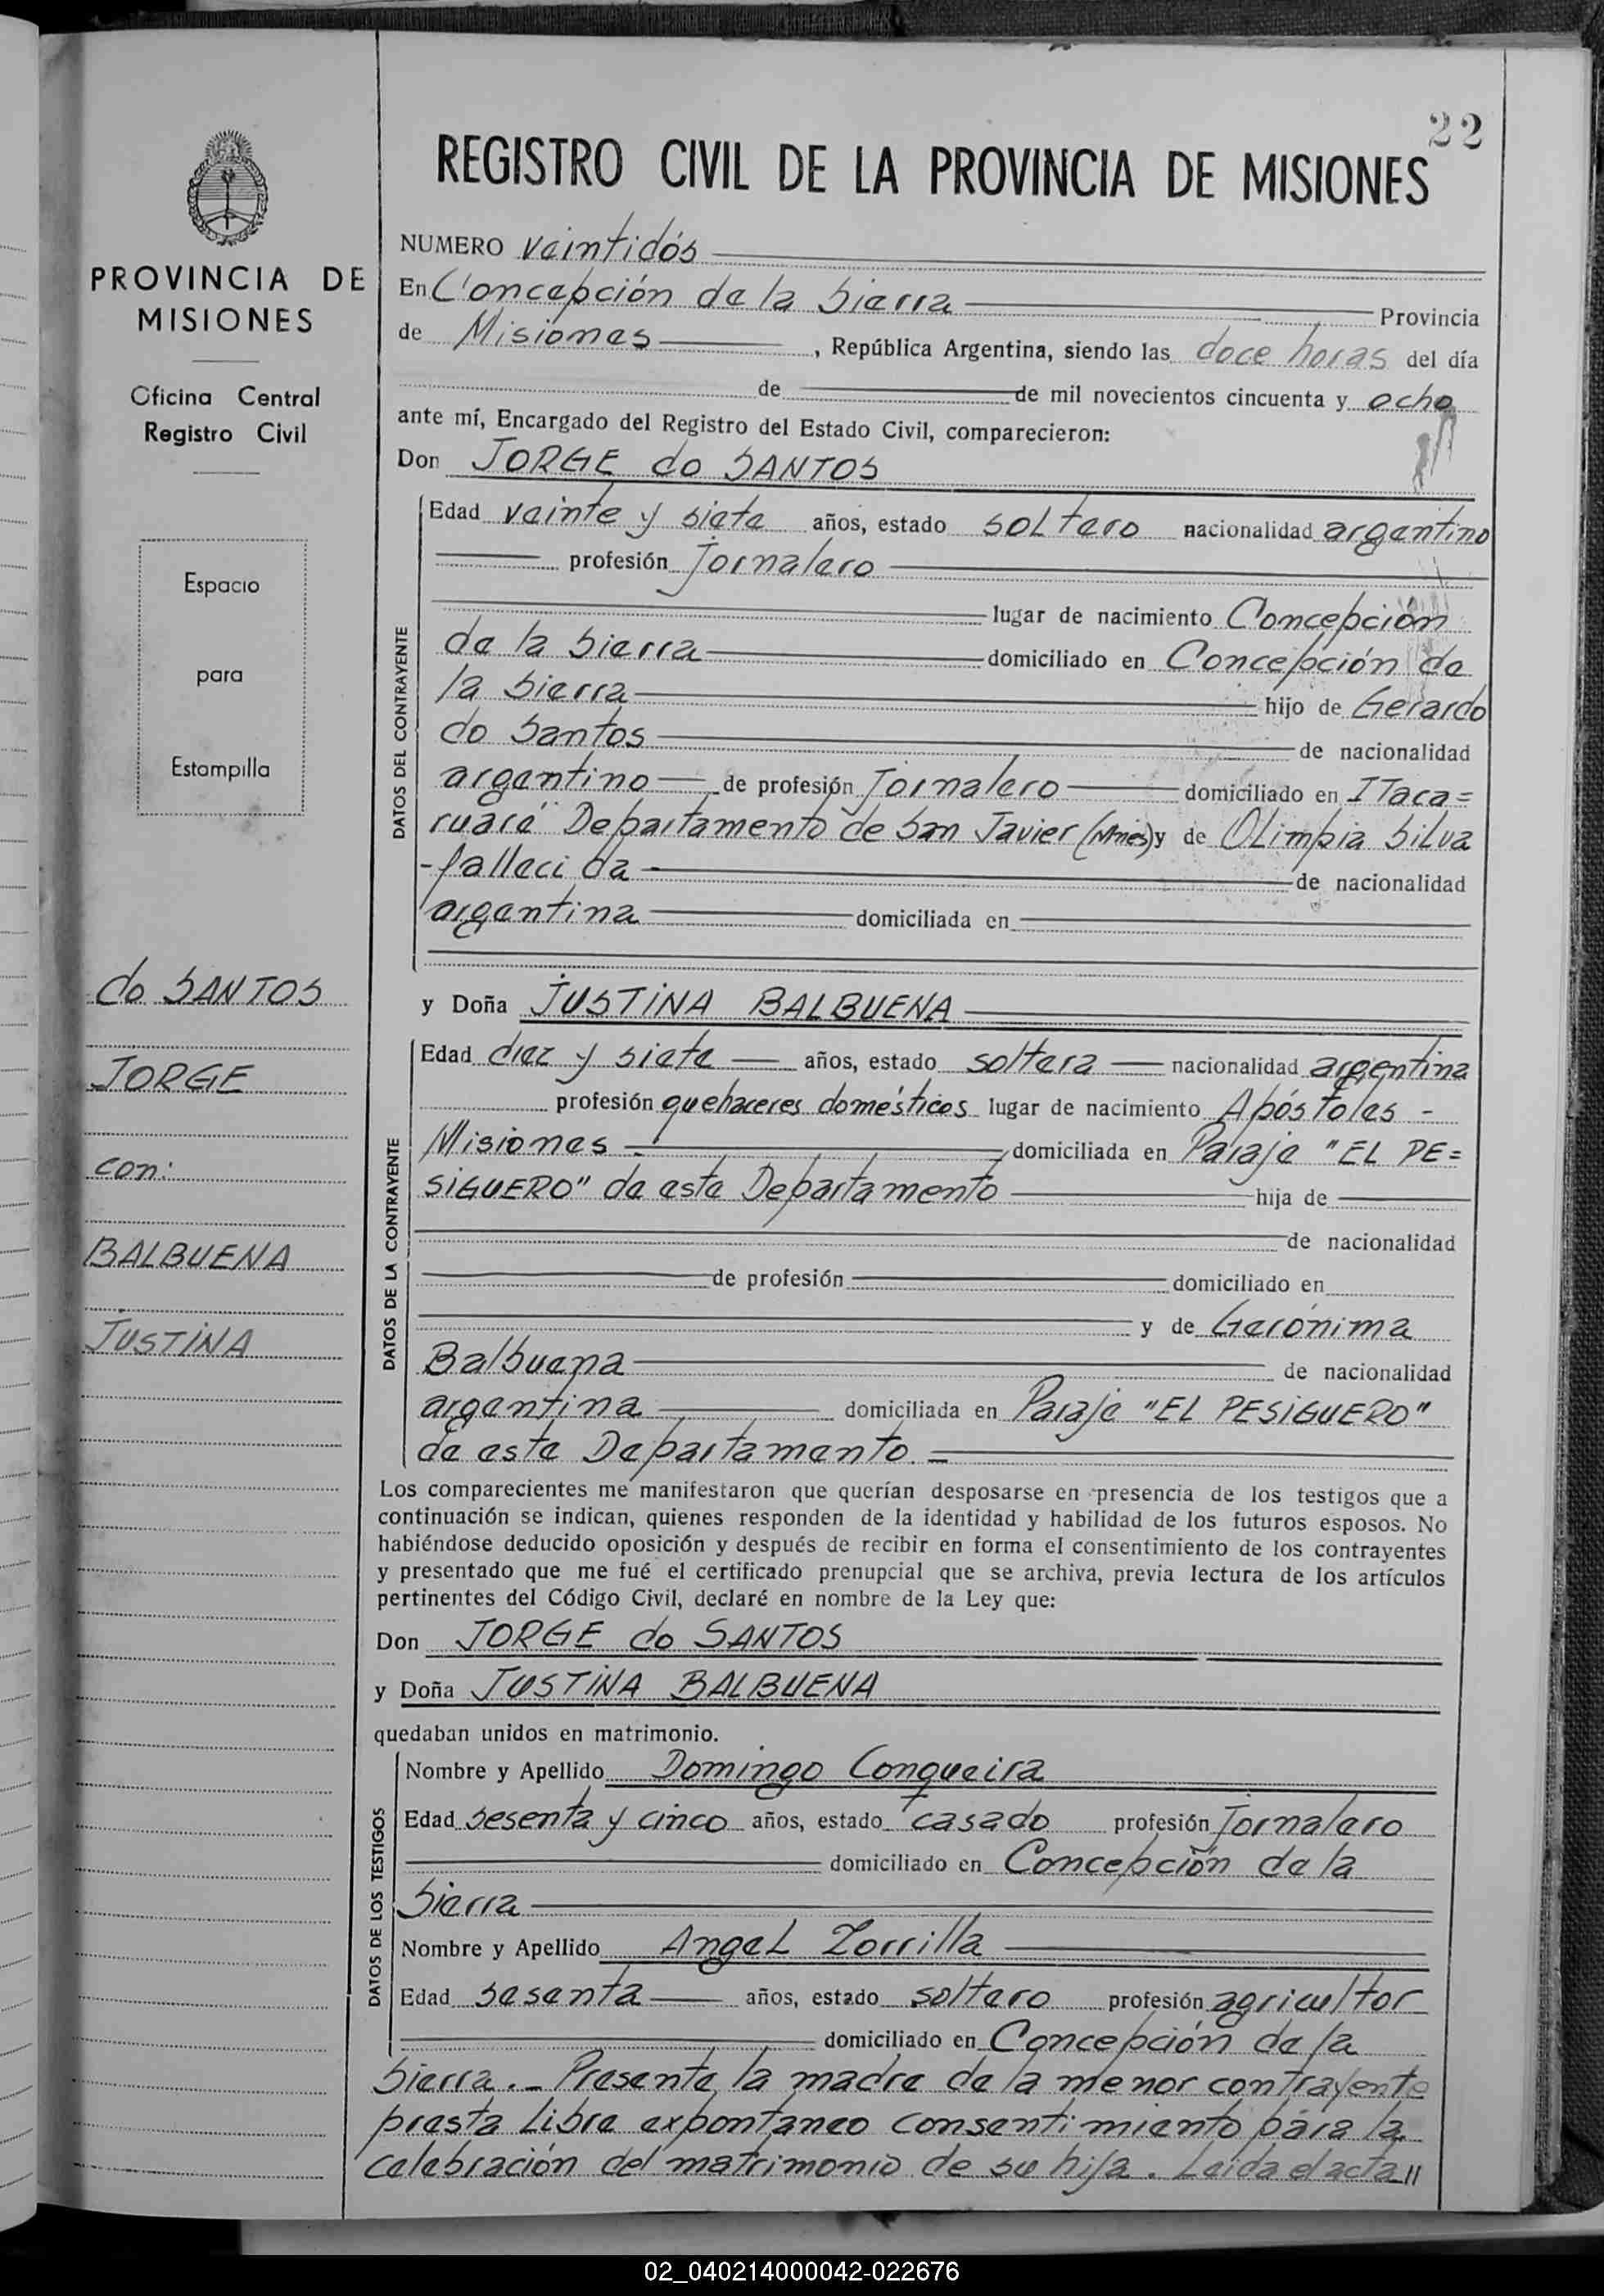 22
REGISTRO CIVIL DE LA PROVINCIA DE MISIONES
PROVINCIA DE
MISIONES
Oficina Central
Registro Civil
Espacio
para
Estampilla
do SANTOS
JORGE
con:
BALBUENA
JUSTINA
NUMERO veintidós
En Concepción de la Sierra Provincia
de Misiones, República Argentina, siendo las doce horas del día
de de mil novecientos cincuenta y ocho
ante mí, Encargado del Registro del Estado Civil, comparecieron:
Don JORGE do SANTOS
DATOS DEL CONTRAYENTE
Edad veinte y siete años, estado soltero nacionalidad argentino
profesión Jornalero
lugar de nacimiento Concepción
de la Sierra domiciliado en Concepción de
la Sierra hijo de Gerardo
do Santos de nacionalidad
argentino de profesión Jornalero domiciliado en ITaca=
ruaré Departamento de San Javier (Mnes) y de Olimpia Silva
-fallecida- de nacionalidad
argentina domiciliada en
y Doña JUSTINA BALBUENA
DATOS DE LA CONTRAYENTE
Edad diez y siete años, estado soltera nacionalidad argentina
profesión quehaceres domésticos lugar de nacimiento Apóstoles -
Misiones domiciliada en Paraje "EL PE=
SIGUERO" de este Departamento hija de
de nacionalidad
de profesión domiciliado en
y de Gerónima
Balbuena de nacionalidad
argentina domiciliada en Paraje "EL PESIGUERO"
de este Departamento.=
Los comparecientes me manifestaron que querían desposarse en presencia de los testigos que a
continuación se indican, quienes responden de la identidad y habilidad de los futuros esposos. No
habiéndose deducido oposición y después de recibir en forma el consentimiento de los contrayentes
y presentado que me fué el certificado prenupcial que se archiva, previa lectura de los artículos
pertinentes del Código Civil, declaré en nombre de la Ley que:
Don JORGE do SANTOS
y Doña JUSTINA BALBUENA
quedaban unidos en matrimonio.
DATOS DE LOS TESTIGOS
Nombre y Apellido Domingo Conqueira
Edad sesenta y cinco años, estado casado profesión Jornalero
domiciliado en Concepción de la
Sierra
Nombre y Apellido Angel Zorrilla
Edad sesenta años, estado soltero profesión agricultor
domiciliado en Concepción de la
Sierra.- Presente la madre de la menor contrayente
presta libre expontaneo consentimiento para la
celebración del matrimonio de su hija. Leida el acta //
02_040214000042-022676